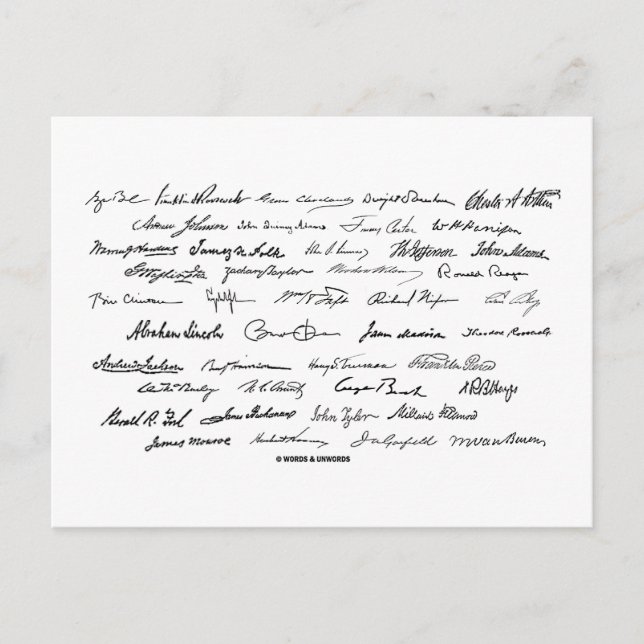 Franklin D Roosevelt Grover Cleveland Dwight D Eisenhower Chester A Arthur
Andrew Johnson John Quincy Adams Jimmy Carter W H Harrison
Warren G Harding James K Polk Th Jefferson John Adams
G Washington Zachary Taylor Woodrow Wilson Ronald Reagan
Bill Clinton Wm H Taft Richard Nixon
Abraham Lincoln James Madison Theodore Roosevelt
Andrew Jackson Benj Harrison Harry S. Truman Franklin Pierce
U. S. Grant George Bush R B Hayes
Gerald R. Ford James Buchanan John Tyler Millard Fillmore
James Monroe Herbert Hoover J A Garfield M Van Buren
© WORDS & UNWORDS